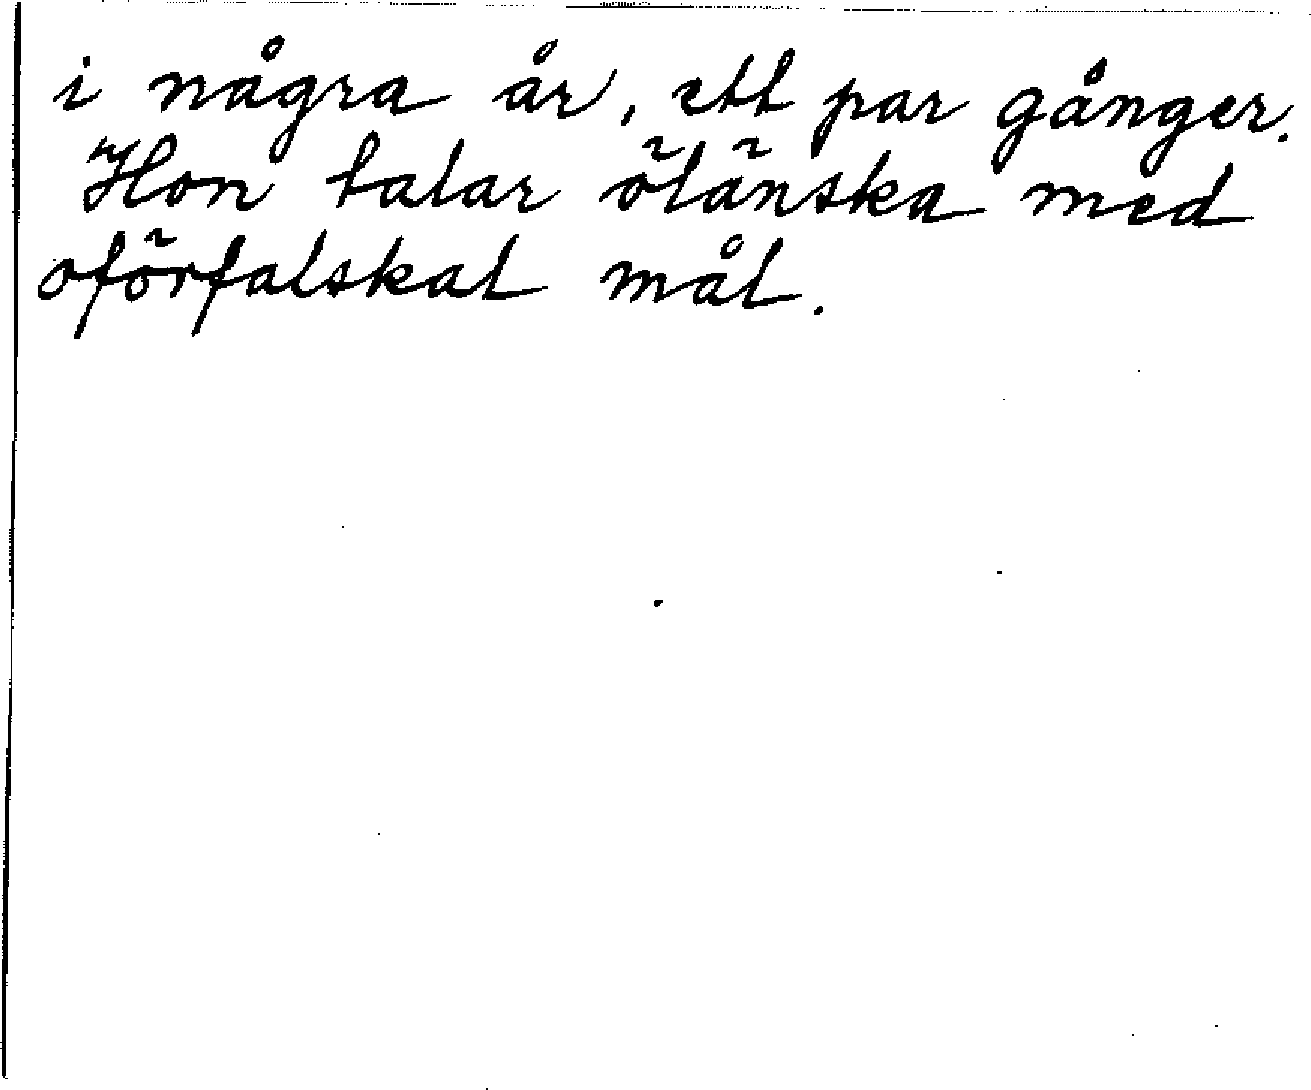 i några år, ett par gånger.
Hon talar öländska med
oförfalskat mål.